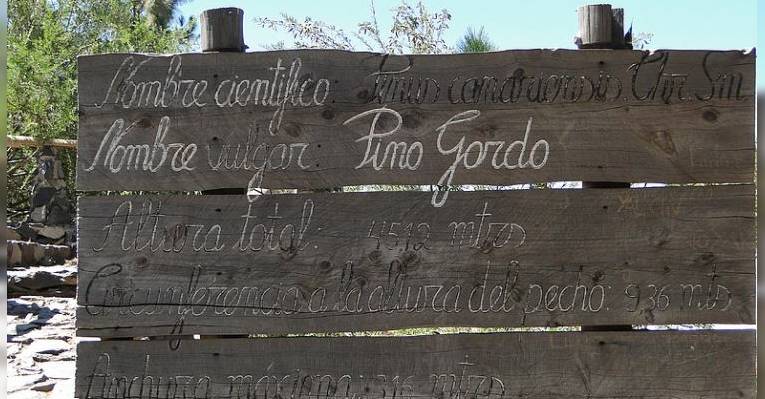 Nombre científico: Pinus canariensis Chr. Sm
Nombre vulgar: Pino Gordo
Altura total: 45,12 mtrs
Circunferencia a la altura del pecho: 9,36 mts
Anchura máxima: mtrs